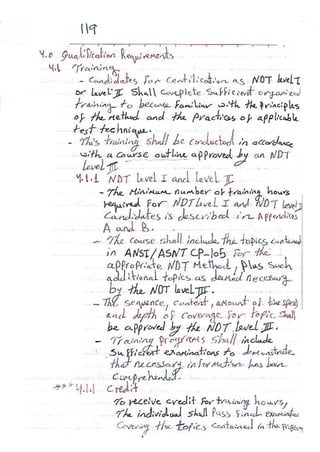 119
4.0 Qualification Requirements
4.1 Training
- Candidates for Centification as NDT level I
or Level II Shall Complete Sufficient organized
training to become Familiar with the principles
of the method and the practices of applicable
test technique.
- This training shall be conducted in accordance
with a course outline approved by an NDT
Level III
4.1.1 NDT level I and level II
- The Minimum number of training hours
required For NDT level I and NDT level II
Candidates is described in Appendices
A and B.
- The course shall include the topics contained
in ANSI/ASNT CP-105 for the
appropriate NDT Method, plus such
additional topics as deemed necessary
by the NOT level III.
- The sequence, content, amount of time spent
and depth of coverage for topic shall
be approved by the NDT level III.
- Training programs shall include
Sufficient examinations to demonstrate
that necessary information has been
Comprehended.
*** 4.1.1 Credit
To receive credit for training hours,
The individual shall pass final examination
Covering the topics contained in the program